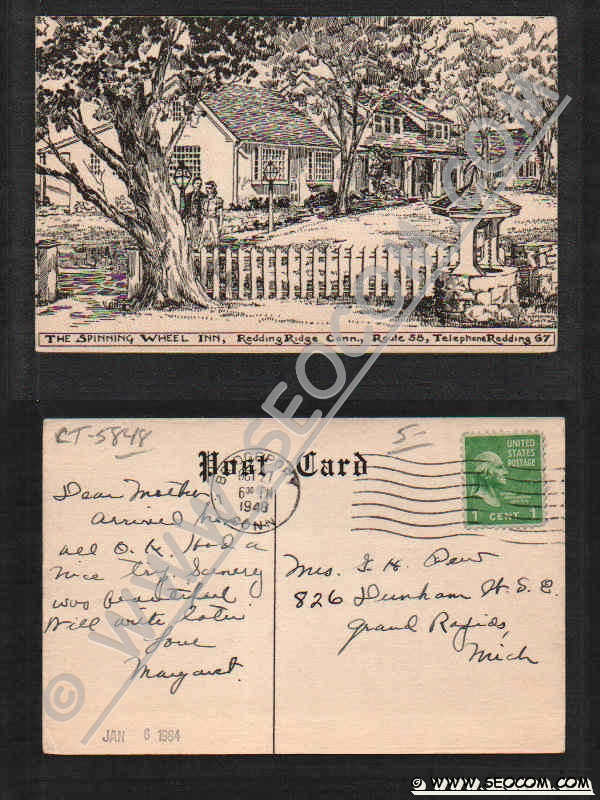 THE SPINNING WHEEL INN, Redding Ridge Conn., Route 58, Telephone Redding 67
CT-5848
5-
Post Card
BRIDGEPORT
OCT 27
6 30 PM
1948
CONN
UNITED
STATES
POSTAGE
1 CENT 1
Dear Mother
Arrived here
all O.K. Had a
nice trip. Scenery
was beautiful.
Will write later
Love
Margaret.
Mrs. I. H. Dew
826 Dunham St. S.E.
Grand Rapids,
Mich
JAN 6 1984
© WWW.SEOCOM.COM
© WWW.SEOCOM.COM